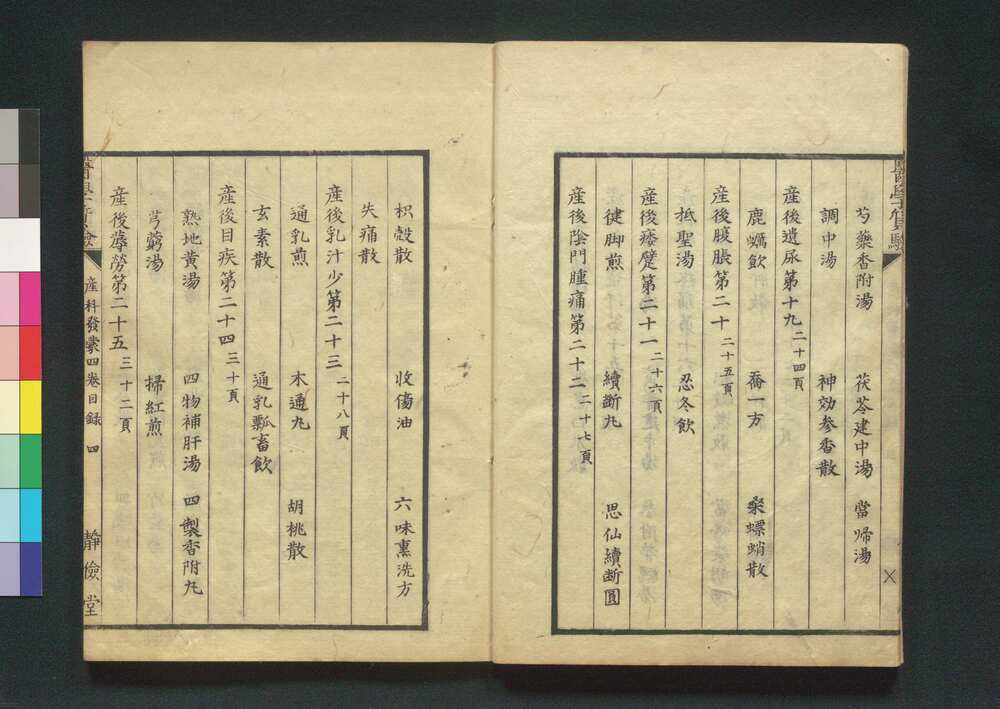 芍藥香附湯 茯苓建中湯 當帰湯
調中湯 神効参香散
産後遺尿第十九 二十四頁
鹿蠣飲 喬一方 桑螵蛸散
産後腹脹第二十 二十五頁
抵聖湯 忍冬飲
産後痿躄第二十一 二十六頁
健脚煎 續断丸 思仙續断圓
産後陰門腫痛第二十二 二十七頁
枳殻散 收傷油 六味熏洗方
失痛散
産後乳汁少第二十三 二十八頁
通乳煎 木通丸 胡桃散
玄素散 通乳瓢畜飲
産後目疾第二十四 三十頁
熟地黄湯 四物補肝湯 四製香附丸
芎藭湯 掃紅煎
産後蓐勞第二十五 三十二頁
産科發蒙四巻目録 四 静儉堂